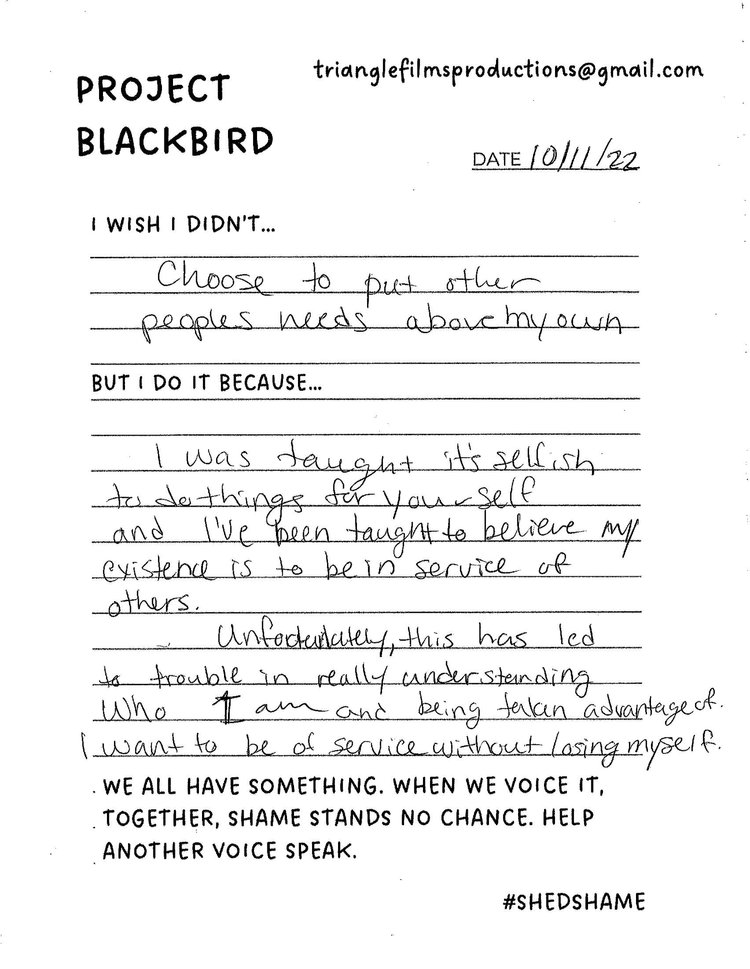 trianglefilmsproductions@gmail.com
PROJECT
BLACKBIRD
DATE 10/11/22
I WISH I DIDN'T...
Choose to put other
peoples needs above my own
BUT I DO IT BECAUSE...
I was taught it's selfish
to do things for yourself
and I've been taught to believe my
existence is to be in service of
others.
Unfortunately, this has led
to trouble in really understanding
Who I am and being taken advantage of.
I want to be of service without losing myself.
WE ALL HAVE SOMETHING. WHEN WE VOICE IT,
TOGETHER, SHAME STANDS NO CHANCE. HELP
ANOTHER VOICE SPEAK.
#SHEDSHAME